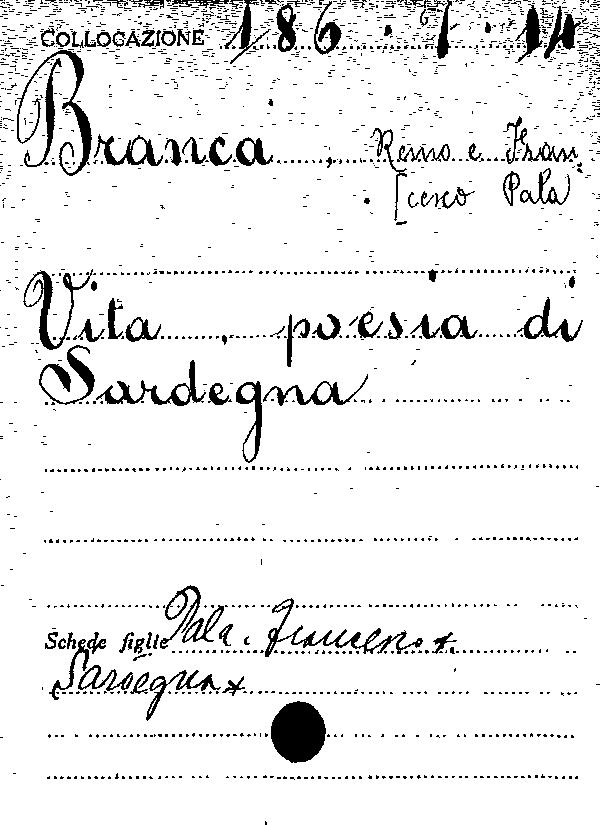 COLLOCAZIONE 186.61.14
Branca, Remo e Fran
[cesco Pala
Vita, poesia di
Sardegna
Schede figlie Pala, Francesco +.
Sardegna +